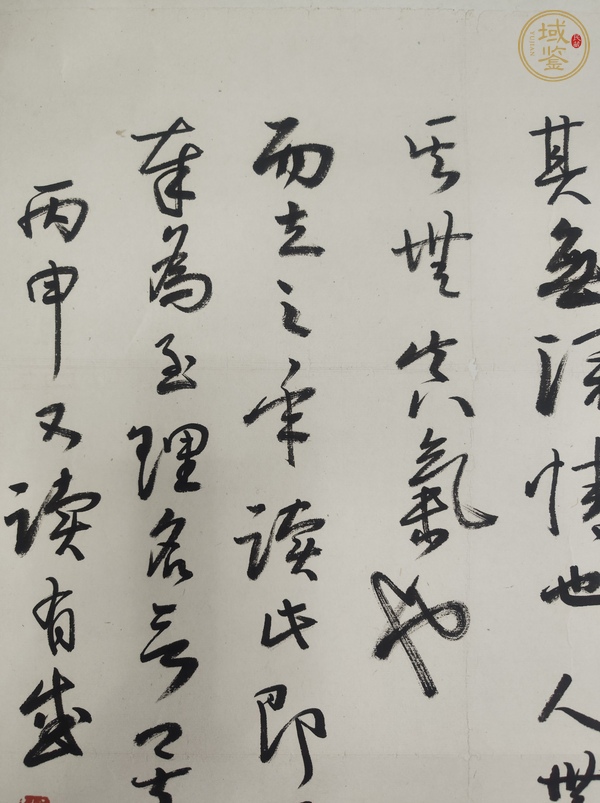 其無深情也人無
其無真氣也
而立之年读此即
奉為至理名言
丙申又读有感
域鉴
YUJIAN